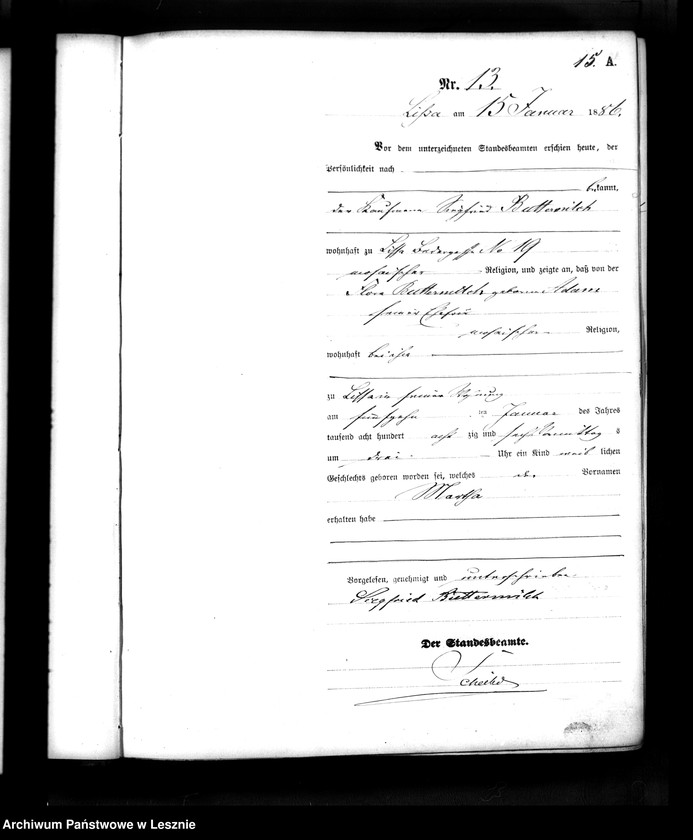 15. A.
Nr. 13.
Lissa am 15 Januar 1886.
Vor dem unterzeichneten Standesbeamten erschien heute, der
Persönlichkeit nach
bekannt,
der Kaufmann Siegfried Buttermilch
wohnhaft zu Lissa No 19
mosaischer Religion, und zeigte an, daß von der
Flora Buttermilch geborene Adam
seiner Ehefrau
mosaischer Religion,
wohnhaft bei ihm
zu Lissa in seiner Wohnung
am fünfzehn ten Januar des Jahres
tausend acht hundert acht zig und sechs Vormittag s
um drei Uhr ein Kind weib lichen
Geschlechts geboren worden sei, welches Vornamen
Martha
erhalten habe
Vorgelesen, genehmigt und unterschrieben
Siegfried Buttermilch
Der Standesbeamte.
Archiwum Państwowe w Lesznie